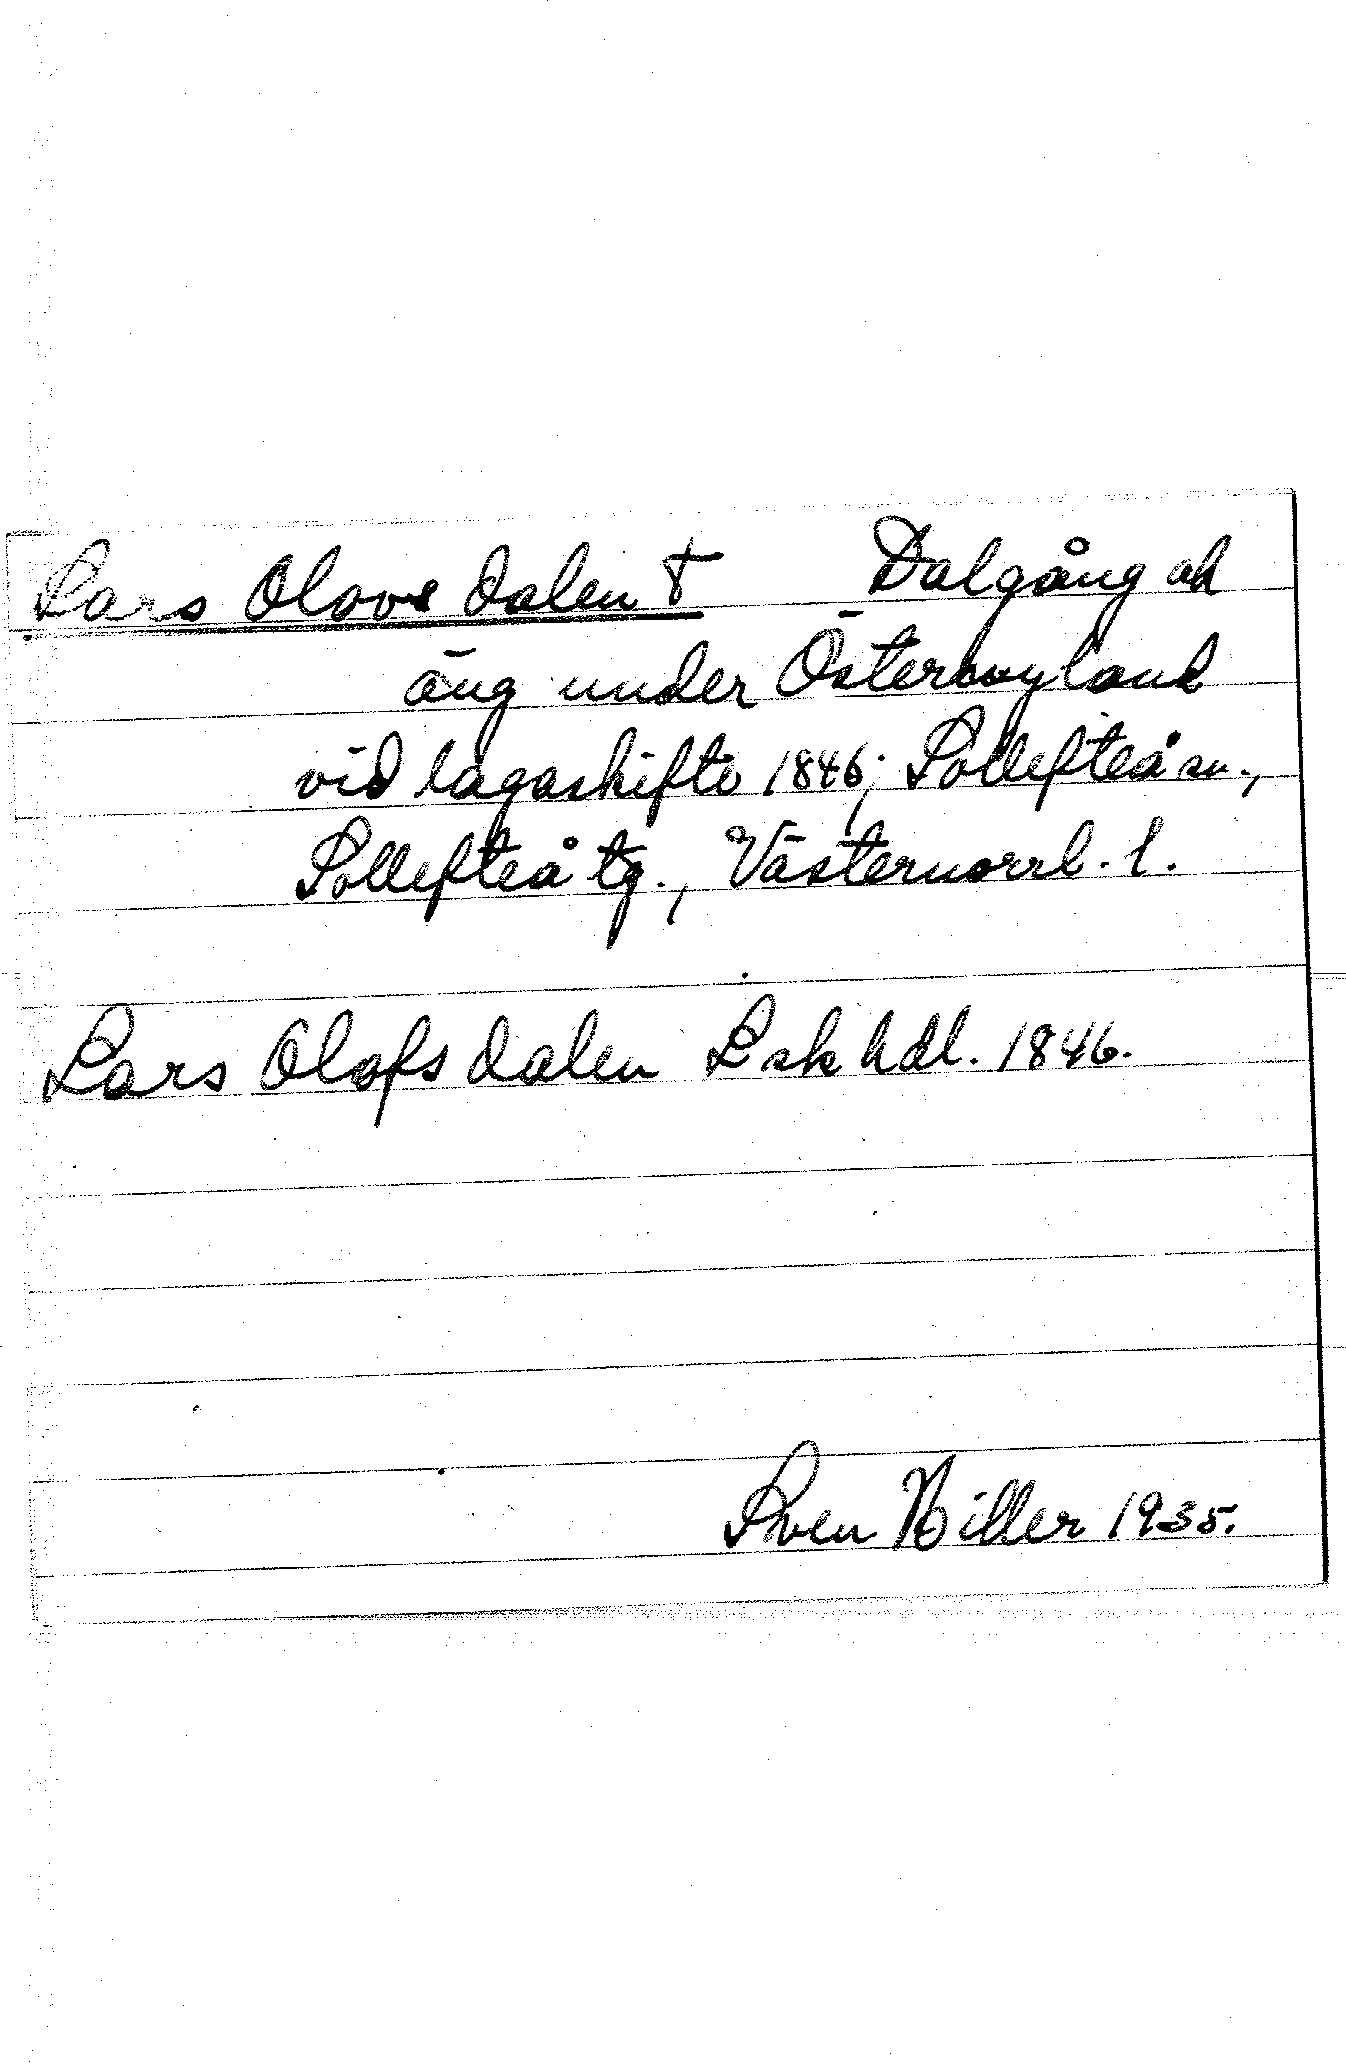 Lars Olovs dalen † Dalgång och
äng under Österbyland
vid lagaskifte 1846; Sollefteå sn.,
Sollefteå tg., Västernorrl. l.
Lars Olofs dalen Lsk hdl. 1846.
Sven Hiller 1935.